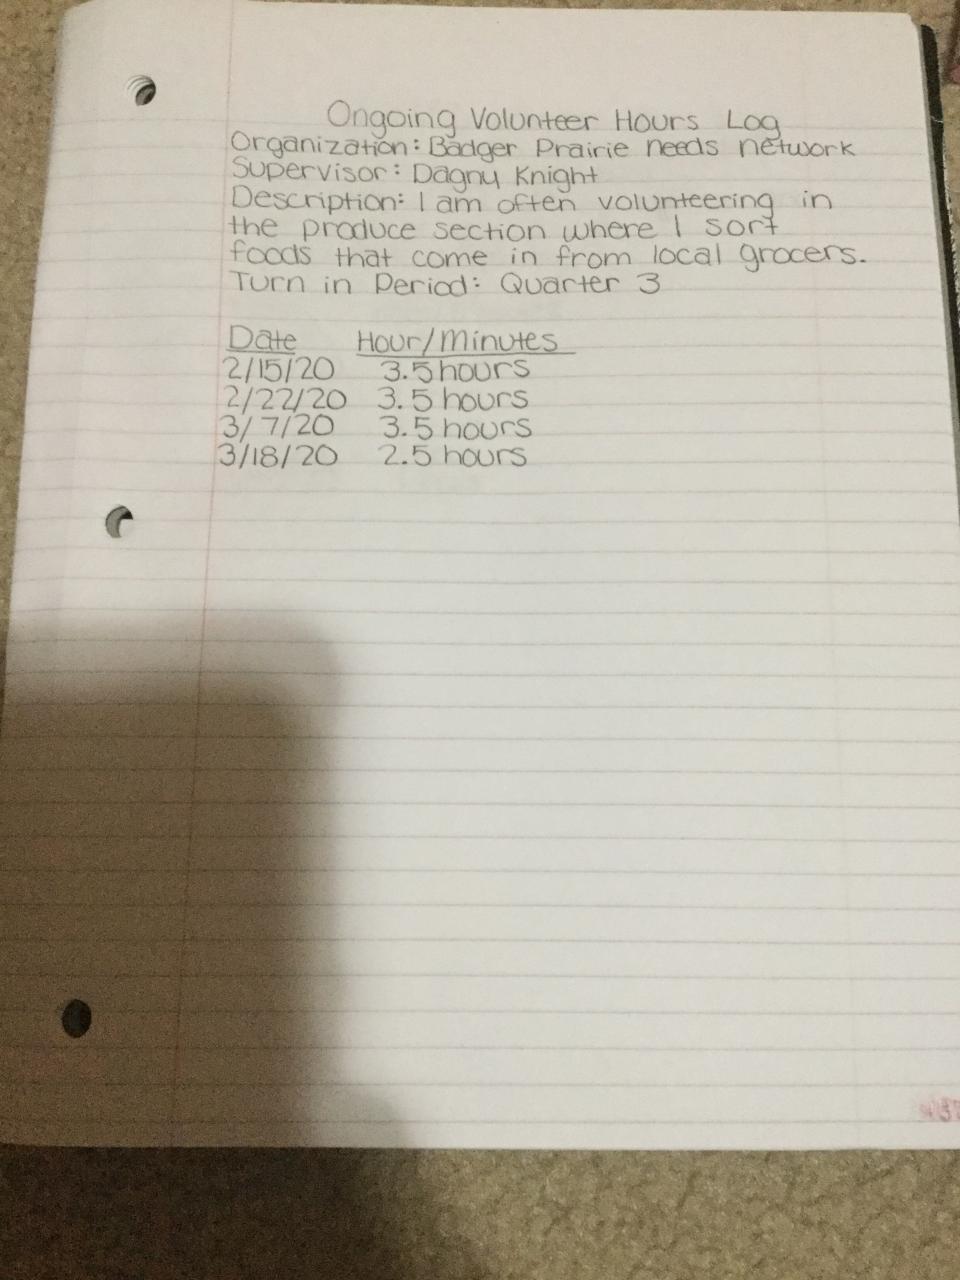 Ongoing Volunteer Hours Log
Organization: Badger Prairie needs network
Supervisor: Dagny Knight
Description: I am often volunteering in
the produce section where I sort
foods that come in from local grocers.
Turn in Period: Quarter 3
Date Hour/Minutes
2/15/20 3.5 hours
2/22/20 3.5 hours
3/7/20 3.5 hours
3/18/20 2.5 hours